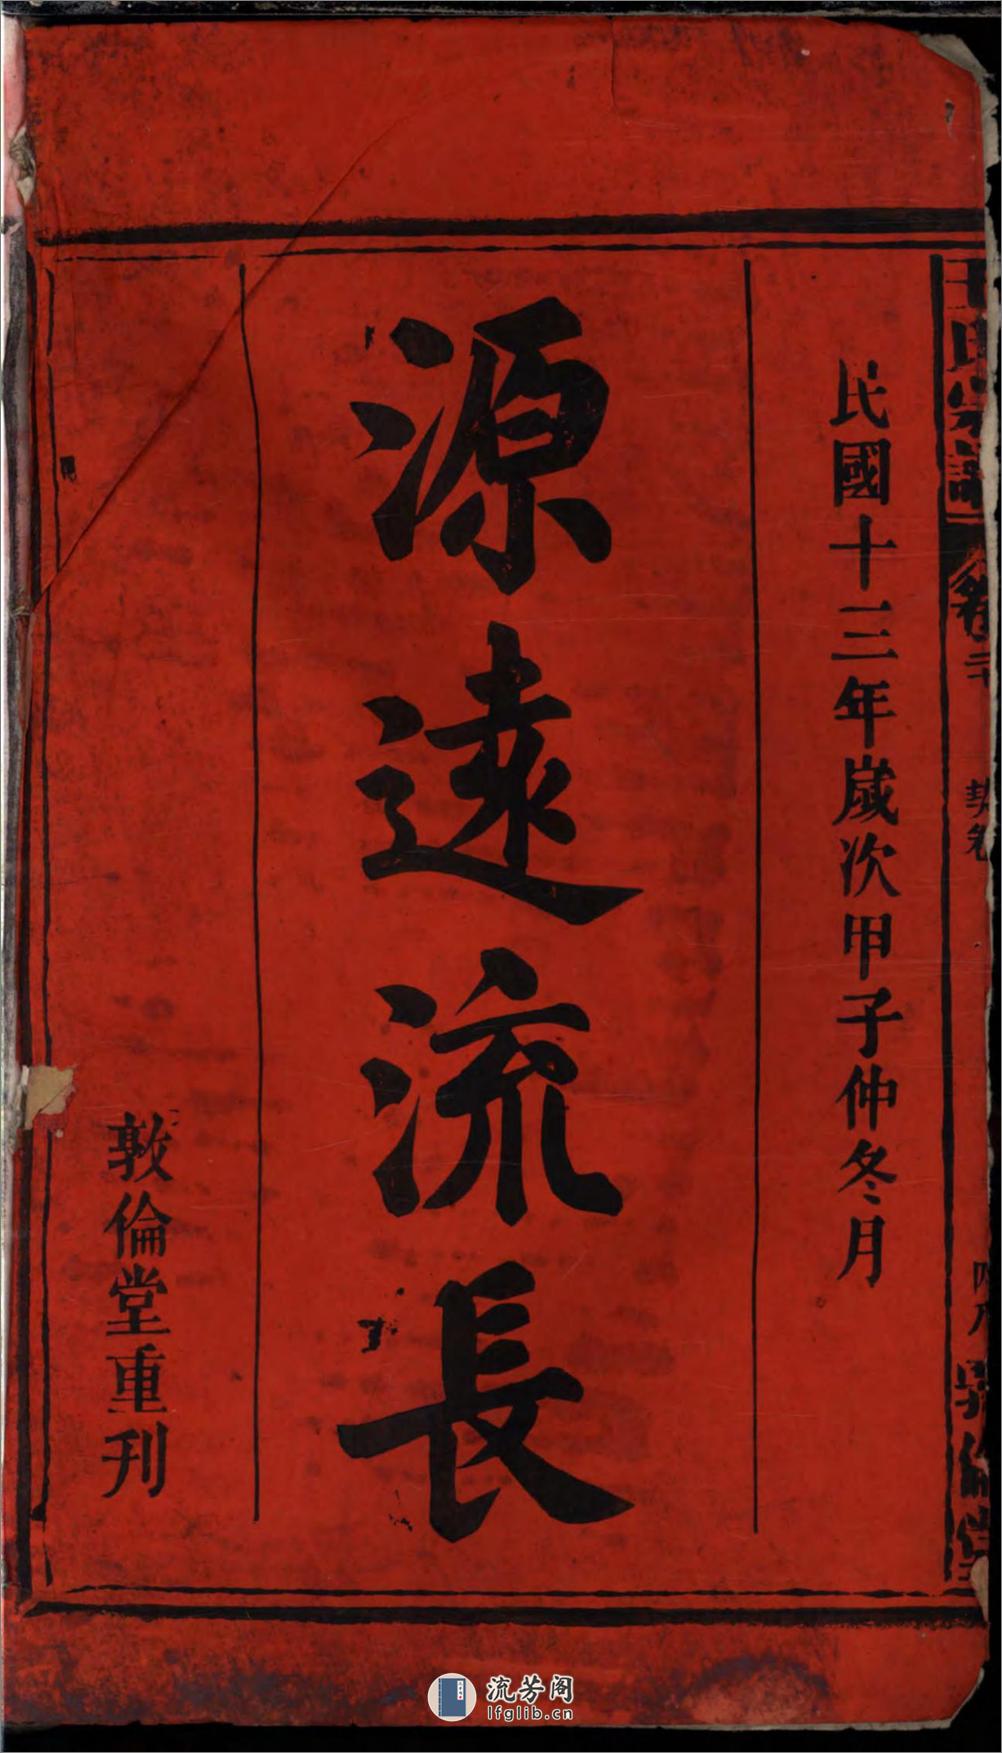 民國十三年歲次甲子仲冬月
源遠流長
敦倫堂重刊
氏宗譜
卷二
敦倫堂
流芳阁
lfglib.cn